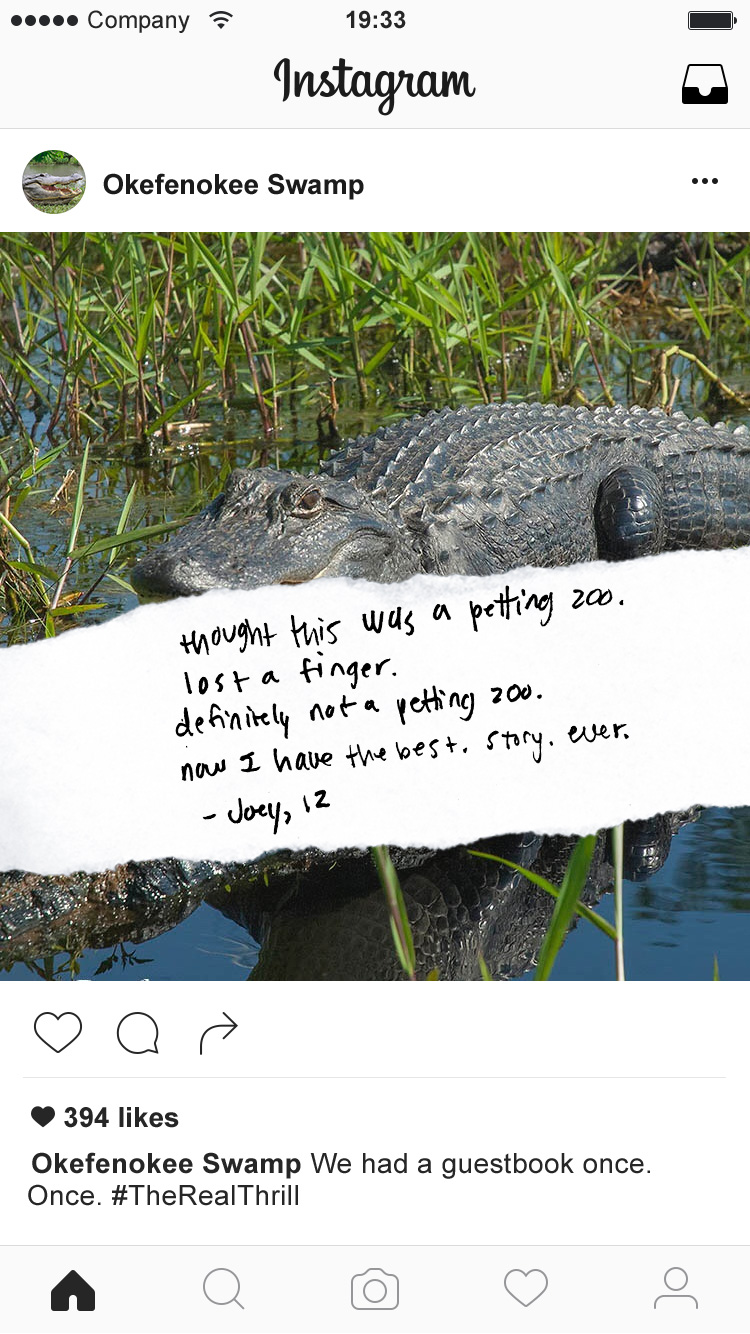 Company 19:33
Instagram
Okefenokee Swamp
thought this was a petting zoo.
lost a finger.
definitely not a petting zoo.
now I have the best. story. ever.
- Joey, 12
394 likes
Okefenokee Swamp We had a guestbook once.
Once. #TheRealThrill